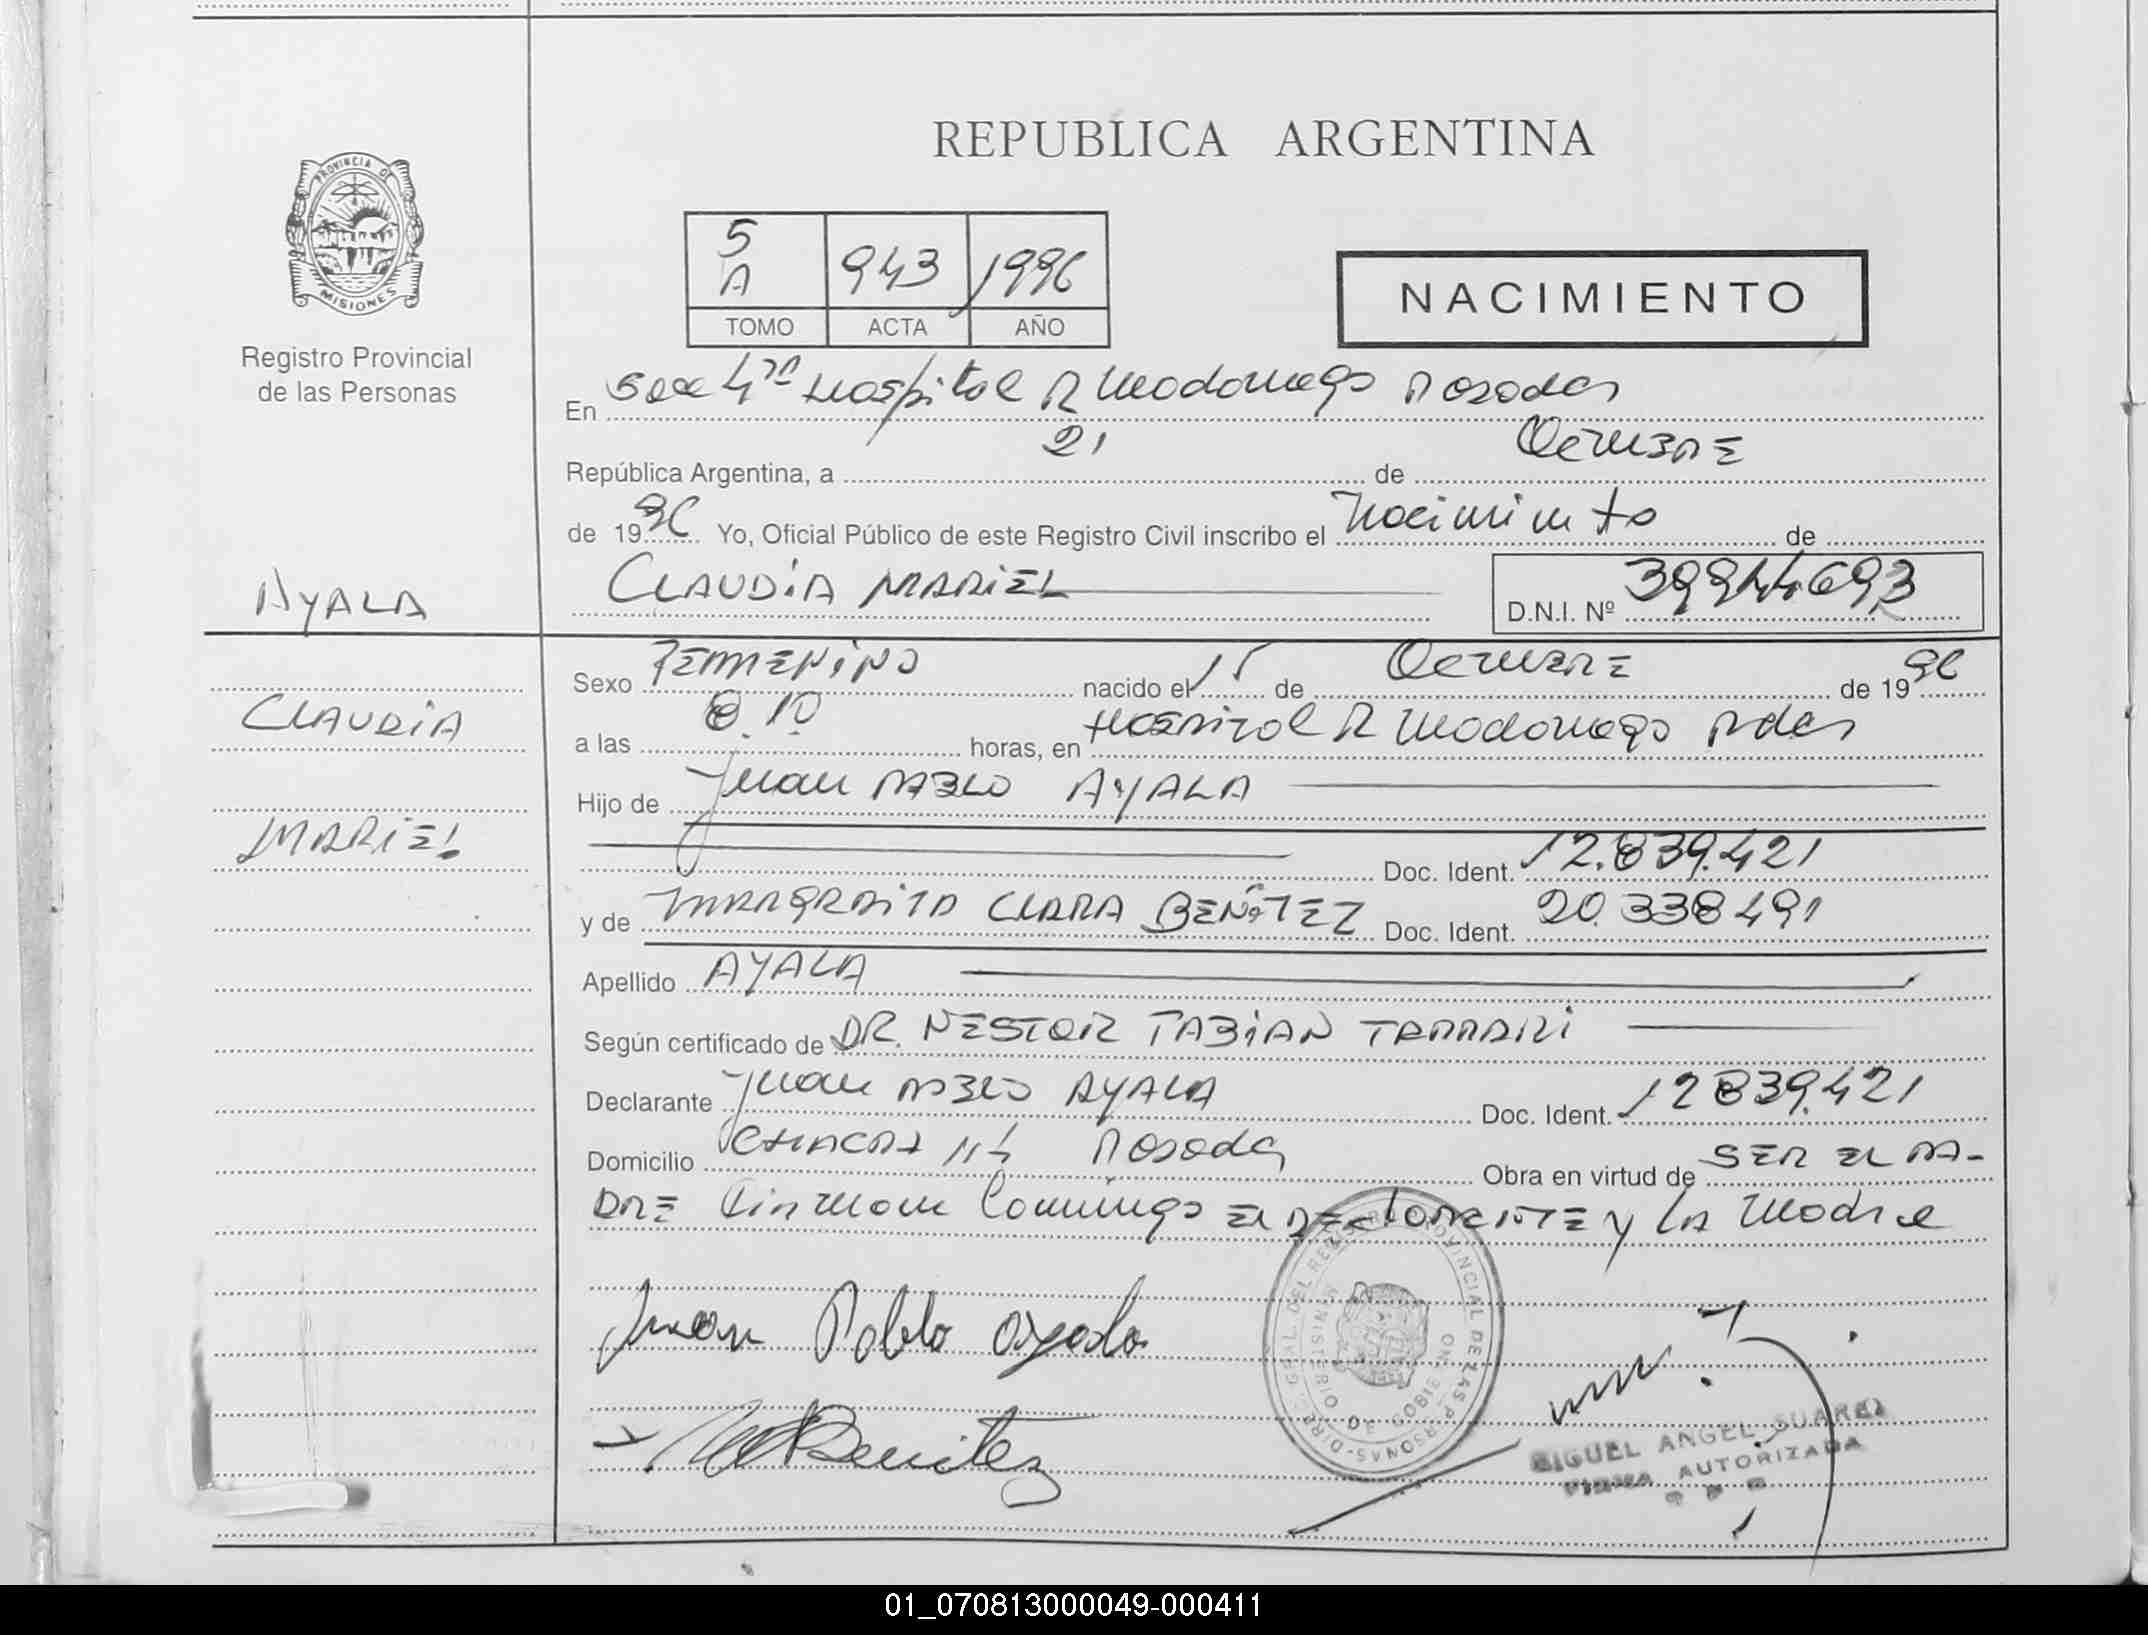 REPUBLICA ARGENTINA
PROVINCIA DE
MISIONES
Registro Provincial
de las Personas
5 A 943 1996
TOMO ACTA AÑO
NACIMIENTO
En Secc 4ta Hospital R Madariaga Posadas
República Argentina, a 21 de OCTUBRE
de 1996 Yo, Oficial Público de este Registro Civil inscribo el Nacimiento de
AYALA
CLAUDIA MARIEL D.N.I. Nº 39944693
Sexo FEMENINO nacido el 15 de OCTUBRE de 1996
CLAUDIA
a las 8.10 horas, en Hospital R Madariaga Pdas
Hijo de Juan PABLO AYALA
MARIEL
Doc. Ident. 12.839.421
y de MARGARITA CLARA BENITEZ Doc. Ident. 20.338491
Apellido AYALA
Según certificado de DR. NESTOR FABIAN
Declarante Juan PABLO AYALA Doc. Ident. 12839.421
Domicilio CHACRA 114 Posadas Obra en virtud de SER EL PA-
DRE Firman Conmigo EL DECLARANTE y La Madre
Juan Pablo Ayala
Benitez
DIREC. GRAL. DEL REGISTRO PROVINCIAL DE LAS PERSONAS
MINISTERIO DE GOBIERNO
MIGUEL ANGEL SUAREZ
FIRMA AUTORIZADA
01_070813000049-000411